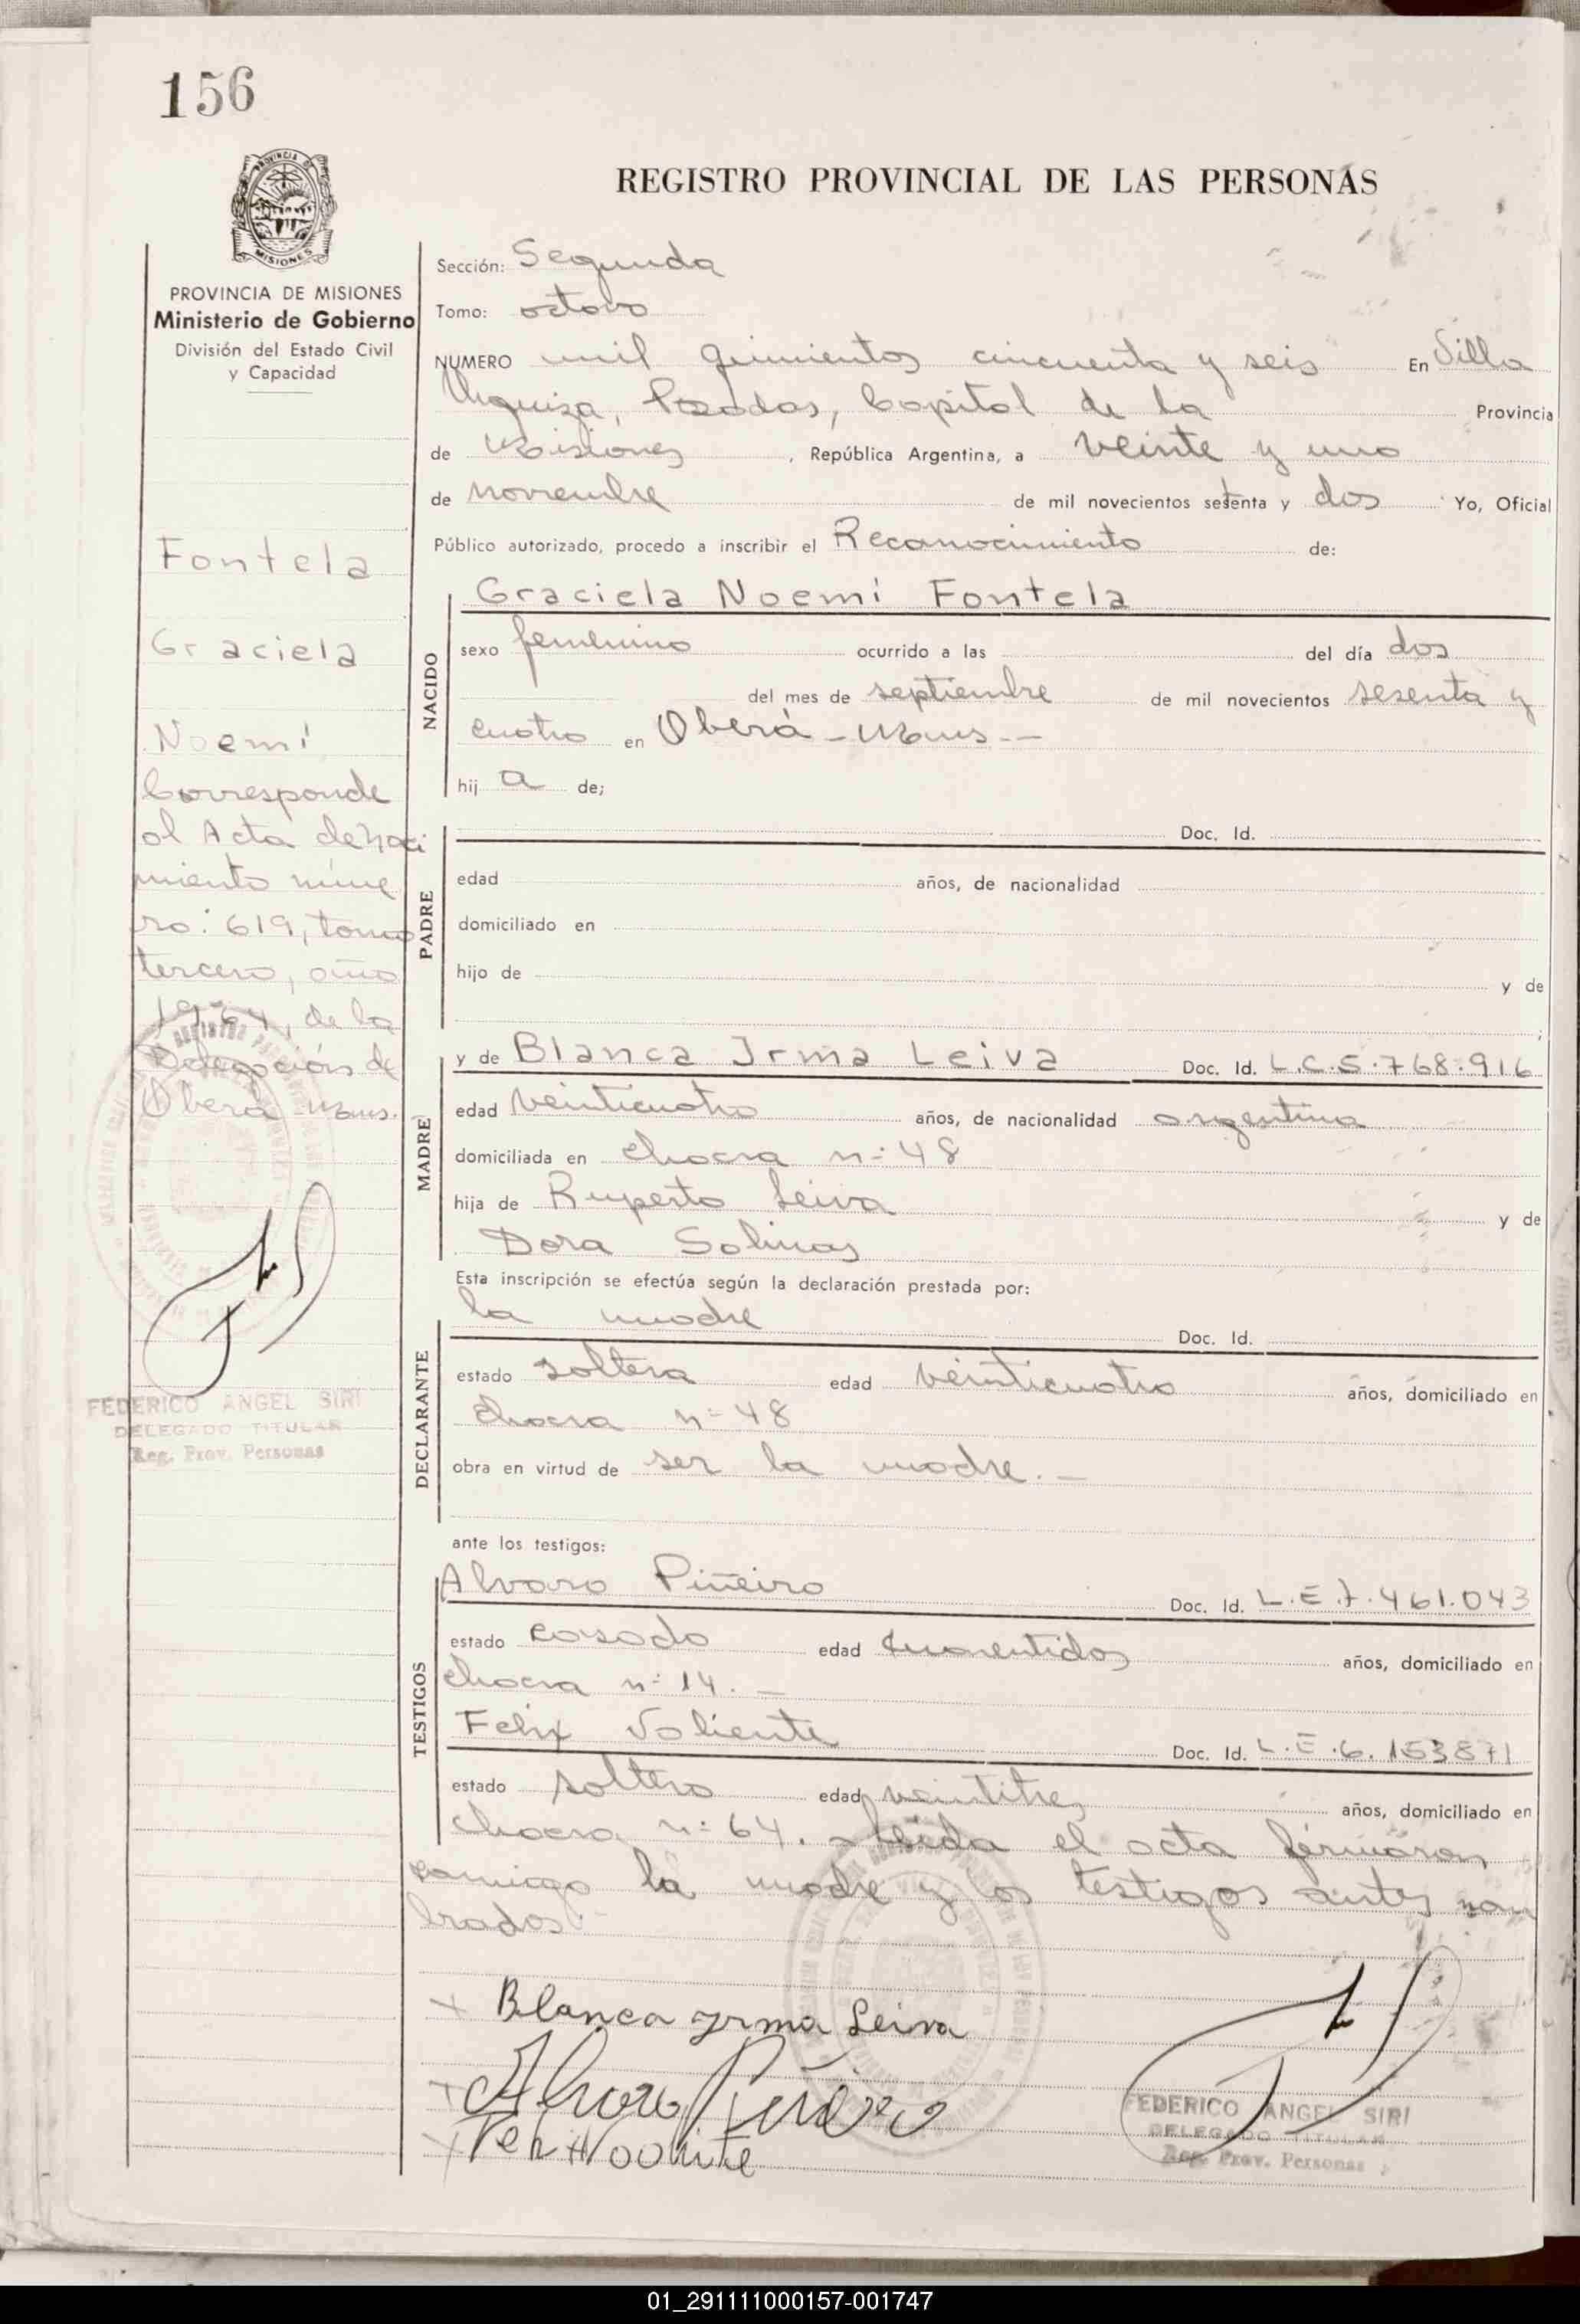 156
PROVINCIA DE
MISIONES
REGISTRO PROVINCIAL DE LAS PERSONAS
PROVINCIA DE MISIONES
Ministerio de Gobierno
División del Estado Civil
y Capacidad
Sección: Segunda
Tomo: octavo
NUMERO mil quinientos cincuenta y seis En Villa
Urquiza, Posadas, Capital de la Provincia
de Misiones, República Argentina, a veinte y uno
de noviembre de mil novecientos setenta y dos Yo, Oficial
Público autorizado, procedo a inscribir el Reconocimiento de:
Fontela
Graciela
Noemí
Corresponde
al Acta de naci
miento núme
ro: 619, tomo
tercero, año
1964, de la
Delegación de
Oberá - Mnes.
FEDERICO ANGEL SIRI
DELEGADO TITULAR
Reg. Prov. Personas
NACIDO
Graciela Noemí Fontela
sexo femenino ocurrido a las del día dos
del mes de septiembre de mil novecientos sesenta y
cuatro en Oberá - Mnes --
hij a de;
PADRE
Doc. Id.
edad años, de nacionalidad
domiciliado en
hijo de y de
;
MADRE
y de Blanca Irma Leiva Doc. Id. L.C.5.768.916
edad veinticuatro años, de nacionalidad argentina
domiciliada en chacra n: 48
hija de Ruperto Leiva y de
Dora Salinas
Esta inscripción se efectúa según la declaración prestada por:
DECLARANTE
la madre Doc. Id.
estado soltera edad veinticuatro años, domiciliado en
chacra n: 48
obra en virtud de ser la madre. -
ante los testigos:
TESTIGOS
Alvaro Piñeiro Doc. Id. L.E.7.461.043
estado casado edad cuarentidos años, domiciliado en
chacra n: 14. -
Felix Valiente Doc. Id. L.E.6.153871
estado soltero edad veintitres años, domiciliado en
chacra n: 64. - Leída el acta firmaron
conmigo la madre y los testigos antes nom
brados. -
Blanca Yrma Leiva
Alvaro Piñeiro
FEDERICO ANGEL SIRI
DELEGADO TITULAR
Reg. Prov. Personas
01_291111000157-001747